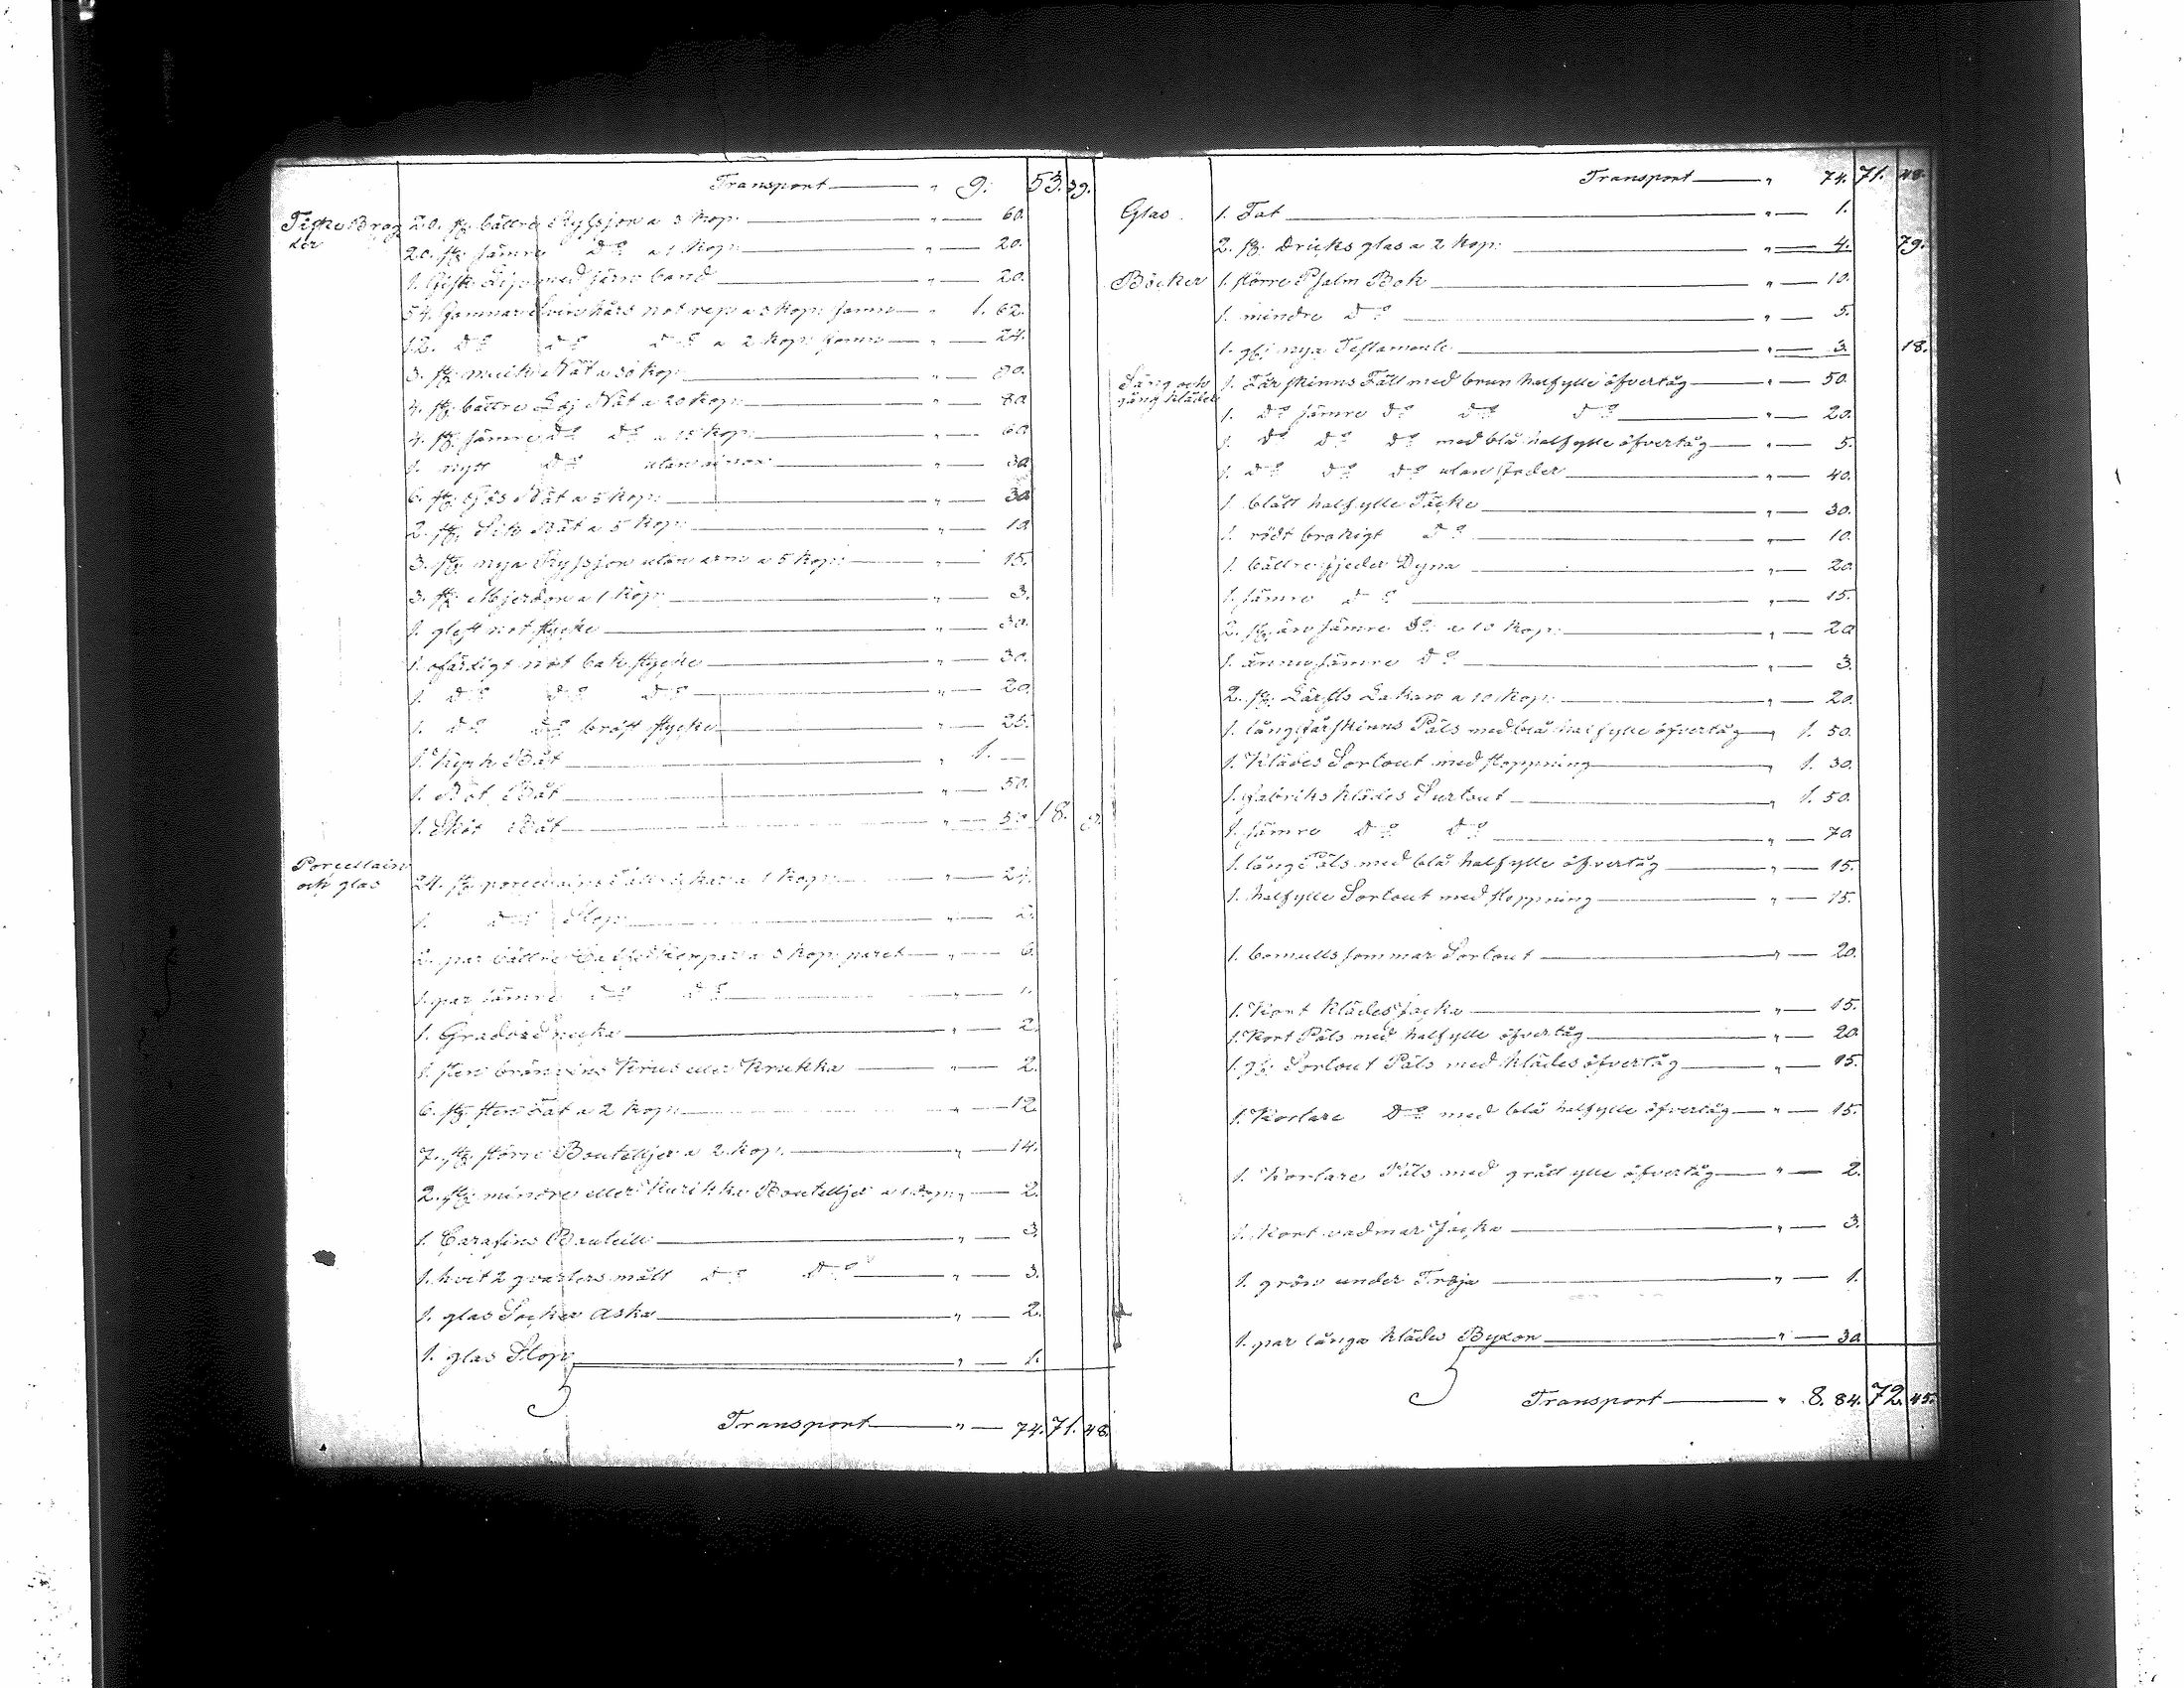 Transport — " 9. 53. 39.
Fiske Brag
der
20. st. bättre Ryssjor a 3 kop: — " — 60.
20. st. sämre do a 1 kop: — " — 20.
1. med jern band — " — 20.
54. famnar not rep a 3 kop: famn — " 1. 62.
12. do do do a 2 kop: famn — " — 24.
3. st. Nät a 30 kop: — " — 90.
4. st. bättre Nät a 20 kop: — " — 80.
4. st. sämre do do a 15 kop: — " — 60.
1. nytt do utan — " — 30.
6. st. Gös Nät a 5 kop: — " — 30.
2. st. Sik Nät a 5 kop: — " — 10.
3. st. nya Ryssjor utan arm a 5 kop: — " — 15.
3. st. Mjerdor a 1 kop: — " — 3.
1. glest not stycke — " — 30.
1. ofärdigt not bak stycke — " — 30.
1. do do do — " — 20.
1. do do bröst stycke — " — 25.
1. Kyrk Båt — " 1. —
1. Not Båt — " — 50.
1. Sköt Båt — " — 18.
Porcellain
och glas
24. st. porcellains Tallrickar a 1 kop: — " — 24.
1. do Stop — " — 2.
2. par bättre Caffe Koppar a 3 kop: paret — " — 6.
1. par sämre do do — " — 1.
1. Gradd Snecka — " — 2.
1. sten bränvins Krus eller Krukka — " — 2.
6. st. sten Fat a 2 kop: — " — 12.
7. st. större Boutelljer a 2 kop: — " — 14.
2. st. mindre eller Kurikka Boutelljer a 1 kop: " — 2.
1. Carafins Bouteille — " — 3.
1. hvit 2 qvarters mått do do — " — 3.
1. glas Socker Aska — " — 2.
1. glas Stop — " — 1.
Transport — " — 74. 71. 48.
Transport — " 74. 71. 48.
Glas. 1. Fat — " — 1.
2. st. Dricks glas a 2 kop: — " — 4. 79.
Böcker 1. större Psalm Bok — " — 10.
1. mindre do — " — 5.
1. gl: nya Testamente — " — 3. 18.
Säng och
gång kläder
1. Fårskinns Fäll med brun halfylle öfvertåg — " — 50.
1. do sämre do do do — " — 20.
1. do do do med blå halfylle öfvertåg — " — 5.
1. do do do utan foder — " — 40.
1. blått halfylle Täcke — " — 30.
1. rödt brokigt do — " — 10.
1. bättre fjeder Dyna — " — 20.
1. sämre do — " — 15.
2. st. än sämre do a 10 kop: — " — 20
1. ännu sämre do — " — 3.
2. st. Lärfts Lakan a 10 kop: — " — 20.
1. lång fårskinns Päls med blå halfylle öfvertåg — " 1. 50.
1. Klädes Sortout med stoppning — " 1. 30.
1. fabriks klädes Surtout — " 1. 50.
1. sämre do do — " — 70.
1. lång Päls med blå halfylle öfvertåg — " — 15.
1. halfylle Sortout med stoppning — " — 15.
1. bomulls sommar Sortout — " — 20.
1. Kort klädes Jacka — " — 15.
1. Kort Päls med halfylle öfvertåg — " — 20.
1. gl: Sortout Päls med klädes öfvertåg — " — 15.
1. Kortare do med blå halfylle öfvertåg — " — 15.
1. Kortare Päls med grått ylle öfvertåg — " — 2.
1. Kort vadmar Jacka — " — 3.
1. grön under Tröja — " — 1.
1. par långa klädes Byxor — " — 30
Transport — " 8. 84. 72. 45.